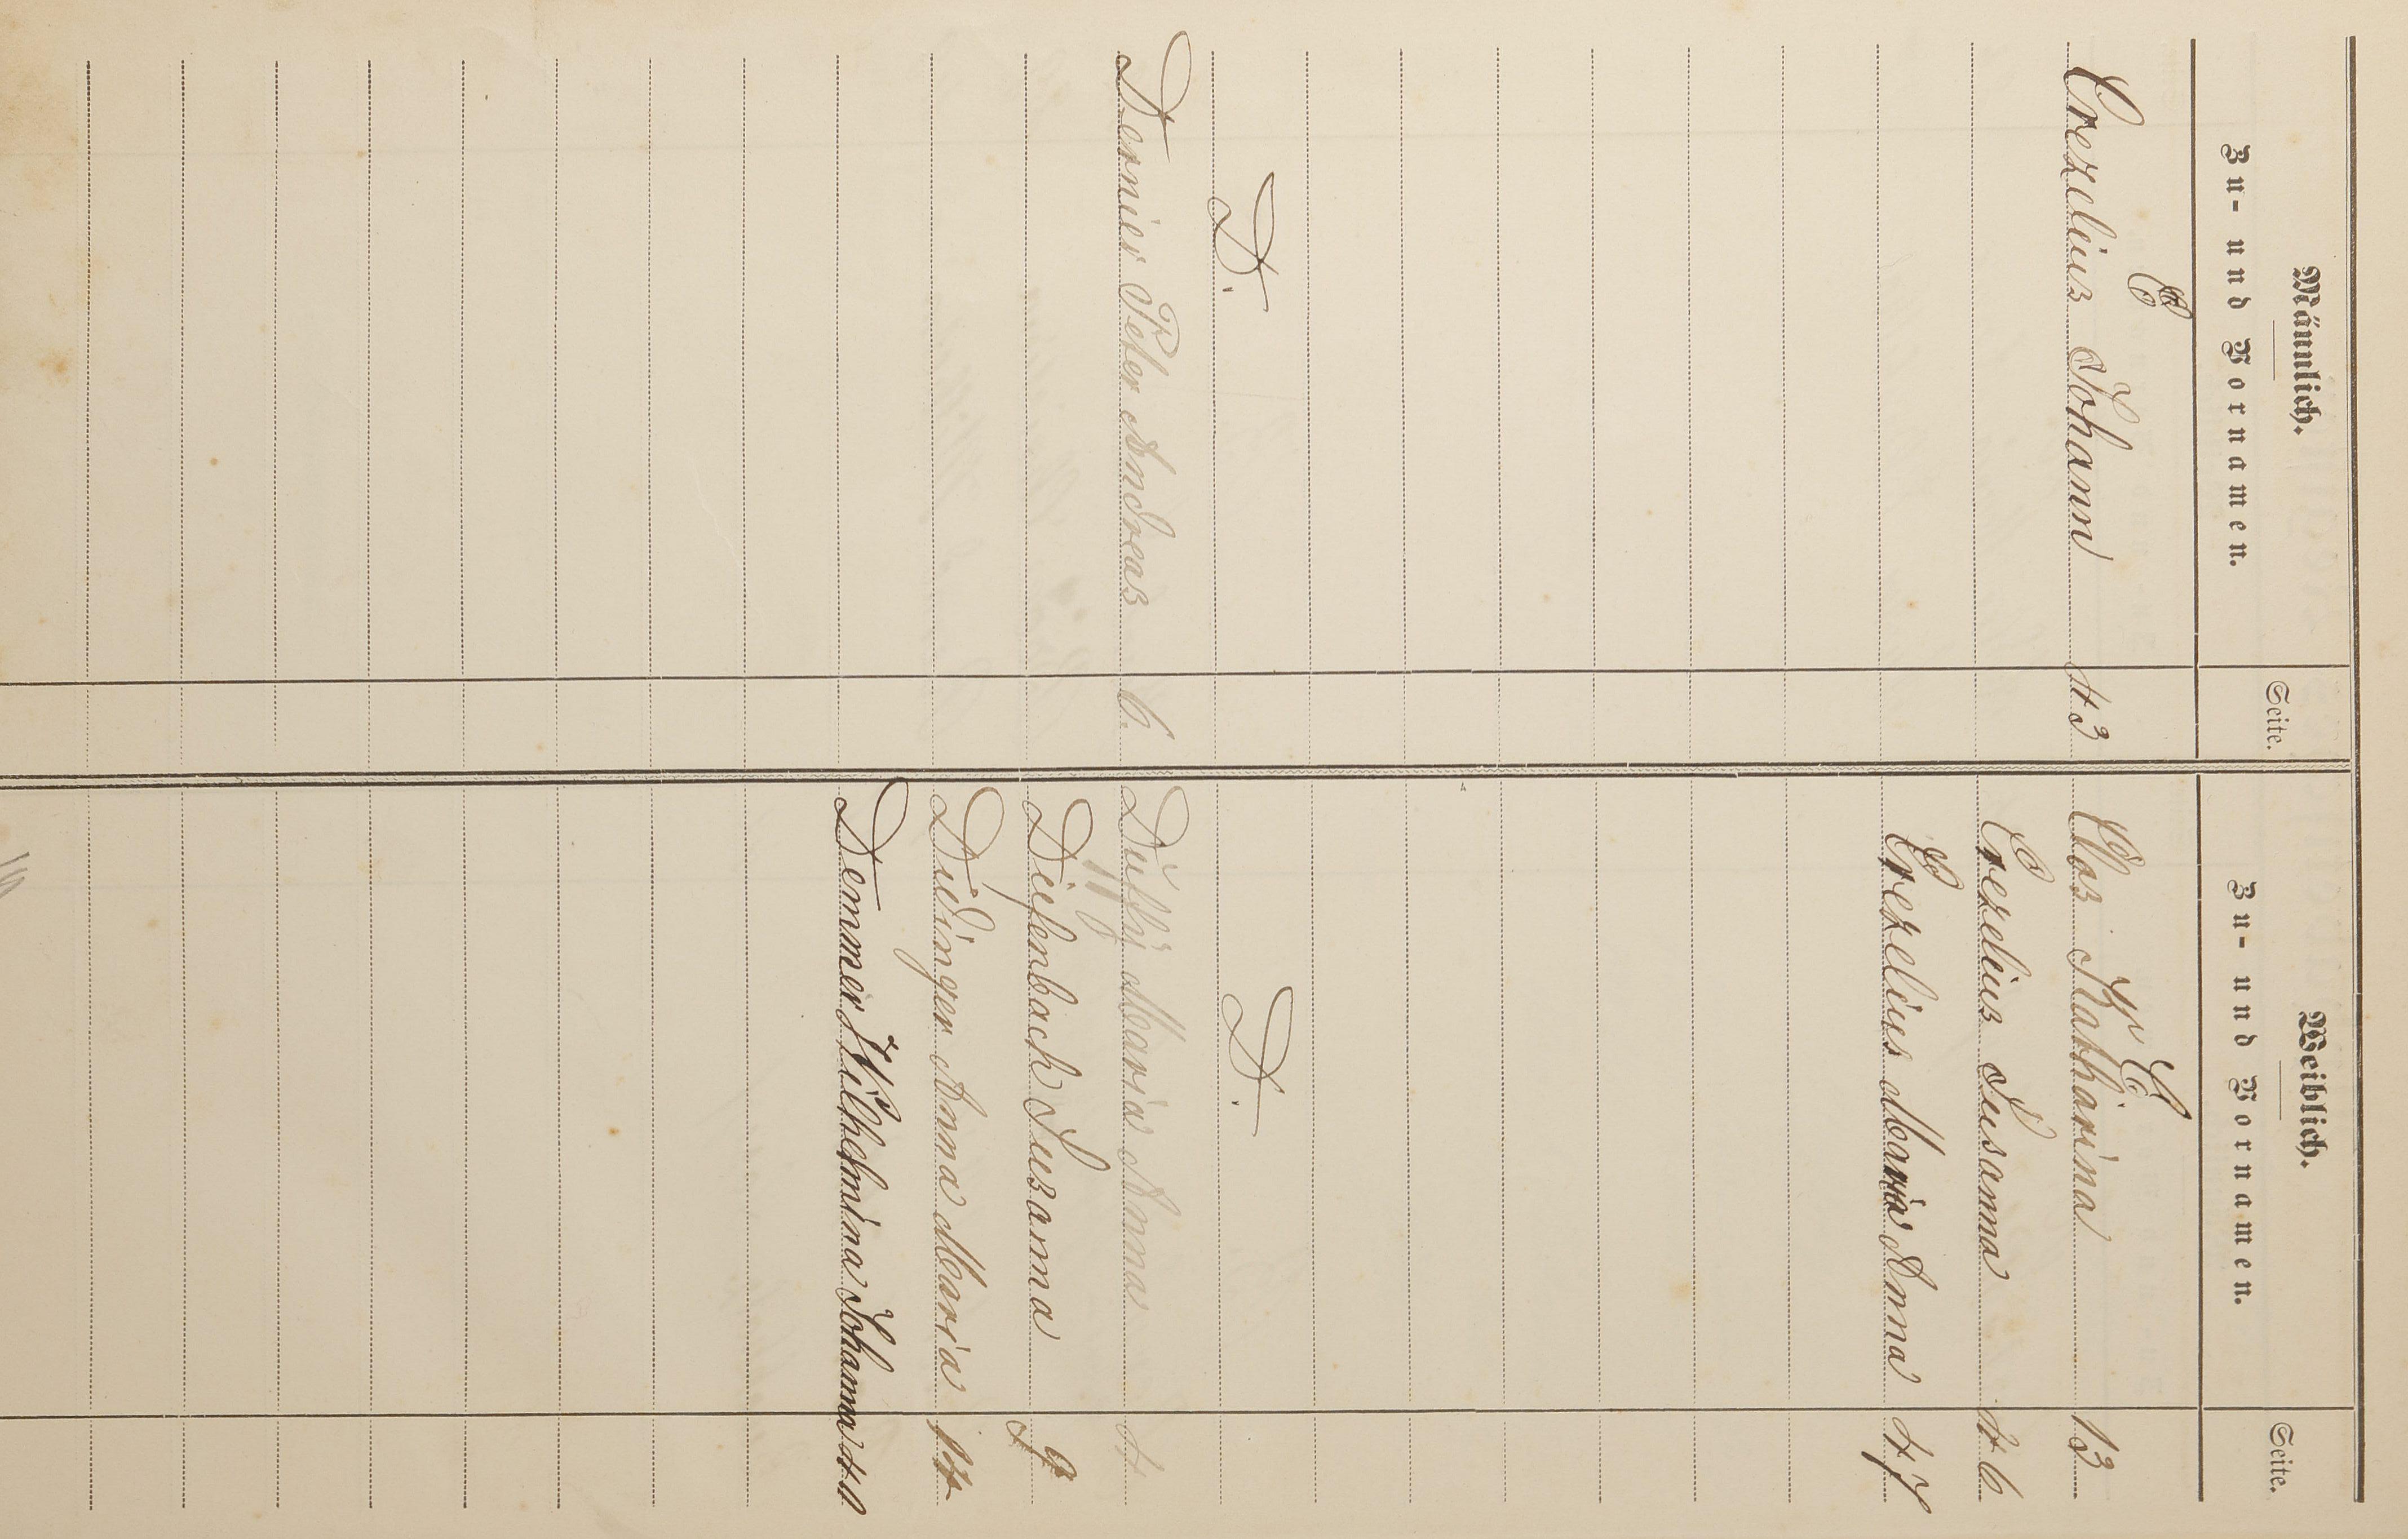 Männlich.
Zu- und Vornamen.
Seite.
C
Crezelius Johann 43
D.
Dernier Peter Andreas 6.
Weiblich.
Zu- und Vornamen.
Seite.
C
Clos Katharina 13
Crezelius Susanna 46
Crezelius Maria Anna 47
D.
Maria Anna 4
Diefenbach Susanna 9
Düdinger Anna Maria 14
Demmer Wilhelmina Johanna 40